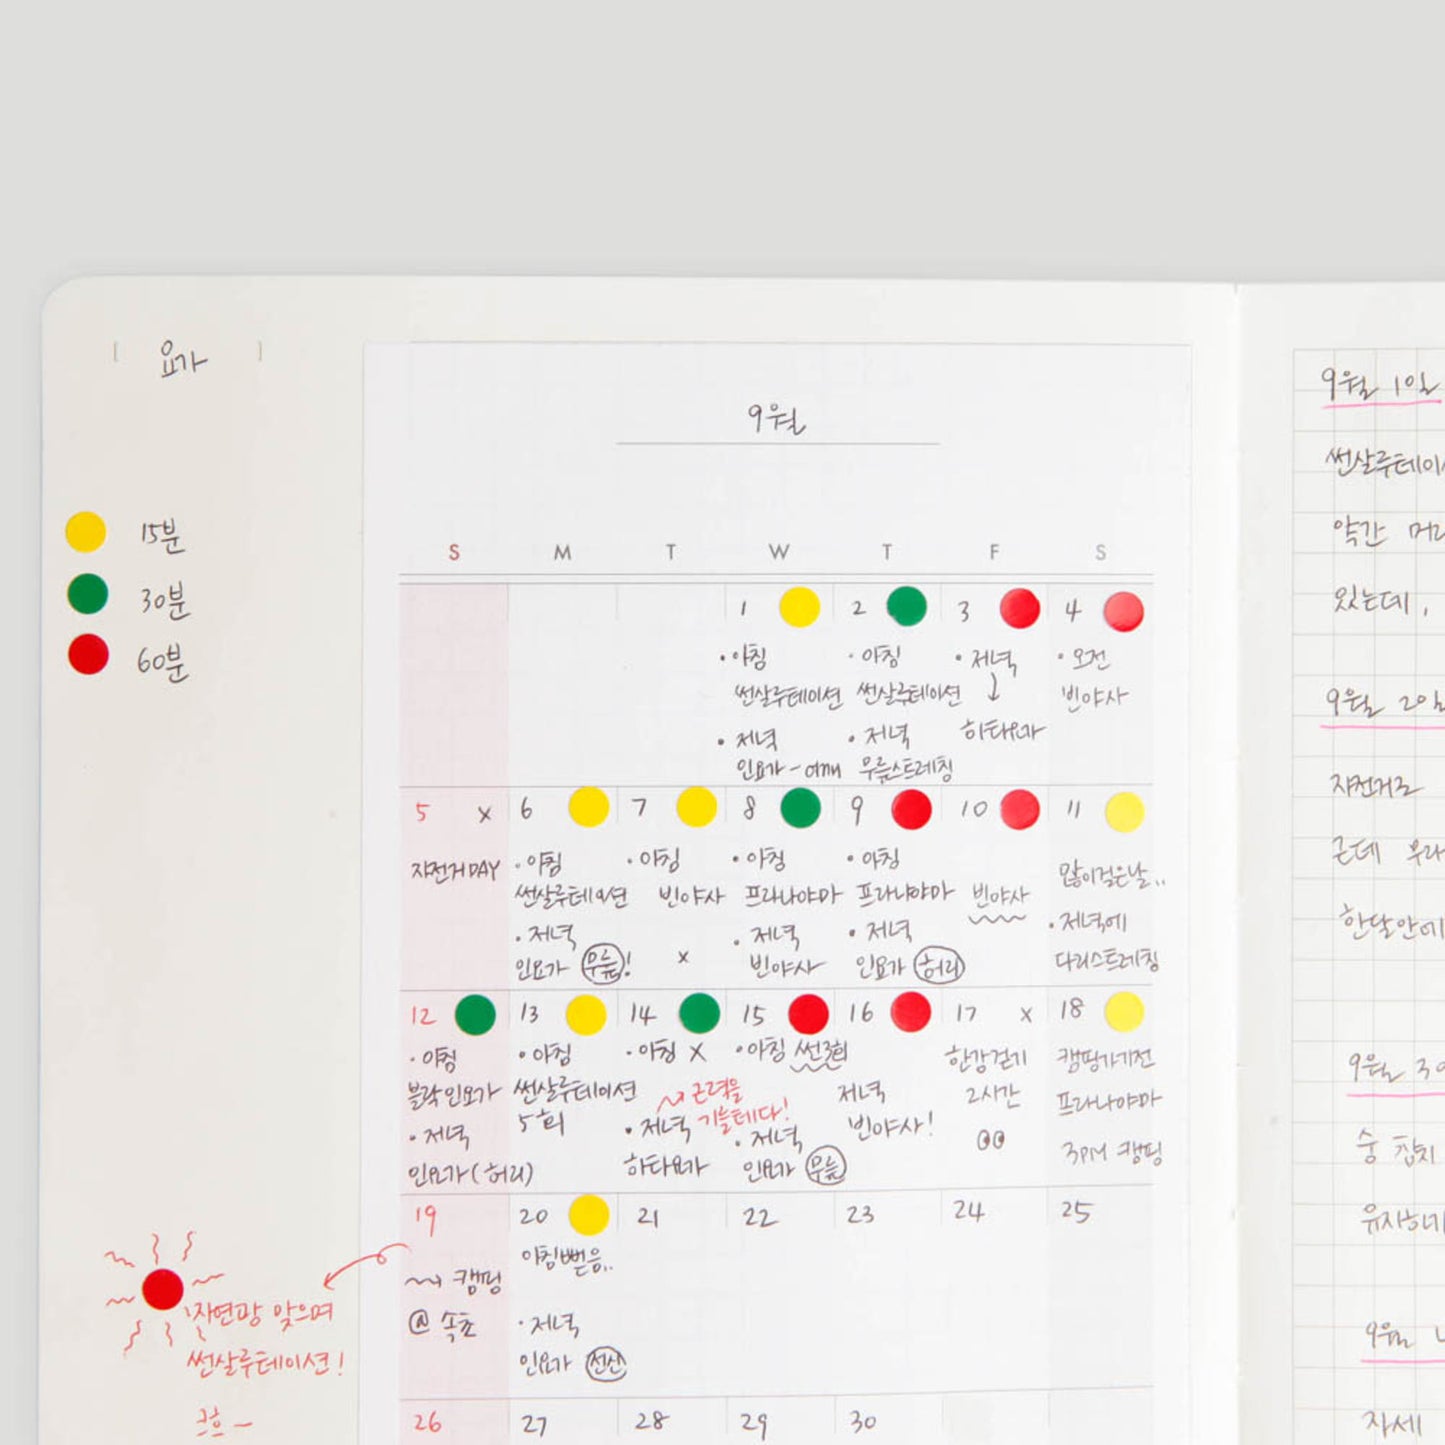 요가
15분
30분
60분
9월
S M T W T F S
1 2 3 4
·아침 ·아침 ·저녁 ·오전
썬살루테이션 썬살루테이션 ↓ 빈야사
·저녁 ·저녁 하타요가
인요가- 무릎스트레칭
5 x 6 7 8 9 10 11
자전거DAY ·아침 ·아침 ·아침 ·아침 많이걸은날..
썬살루테이션 빈야사 프라나야마 프라나야마 빈야사
·저녁 ·저녁 ·저녁 ·저녁에
인요가 무릎! x 빈야사 인요가 허리 다리스트레칭
12 13 14 15 16 17 x 18
·아침 ·아침 ·아침 X ·아침 한강걷기 캠핑가기전
블락인요가 썬살루테이션 근력을 저녁 2시간 프라나야마
5회 기를테다!
·저녁 ·저녁 ·저녁 빈야사! 3PM 캠핑
인요가(허리) 하타요가 인요가 무릎
19 20 21 22 23 24 25
캠핑 아침뻗음..
@ 속초 ·저녁
인요가 전신
자연광 맞으며
썬살루테이션!
26 27 28 29 30
9월 1일
썬살루테이
약간 머리
있는데,
9월 2일
자전거로
근데
한달안에
9월 3
숨 참지
유지하
9월
자세